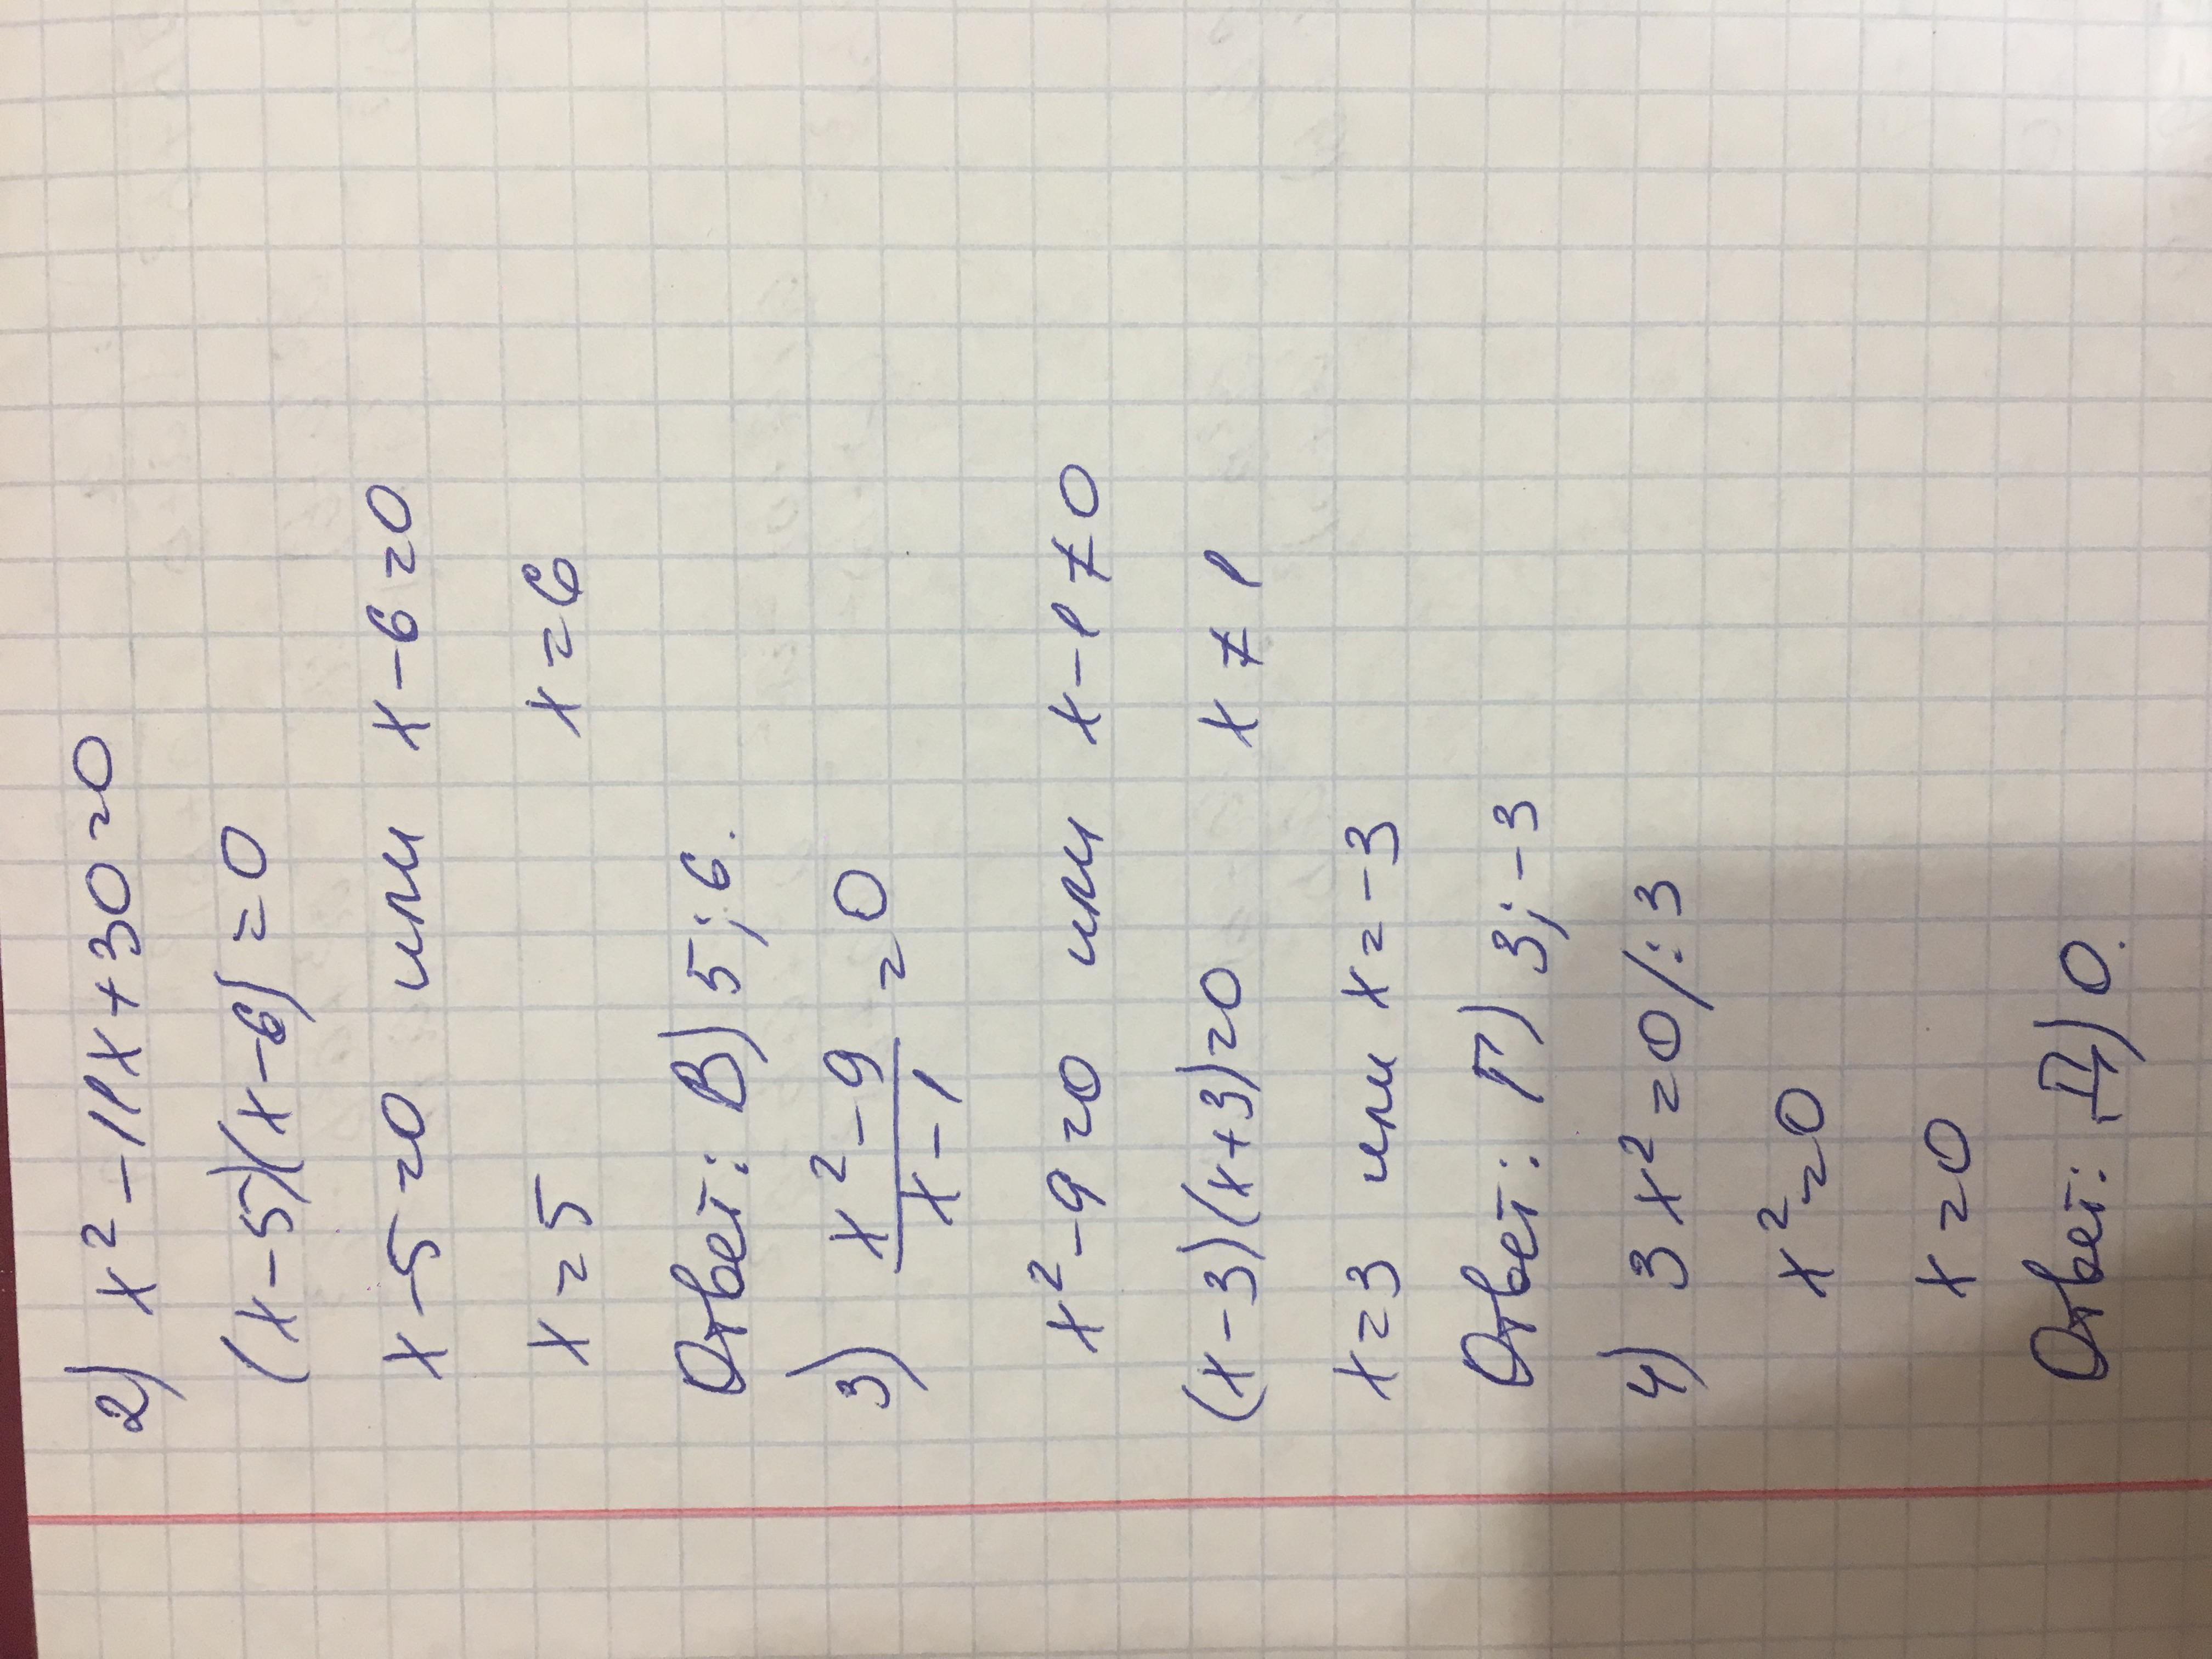 2) x² - 11x + 30 = 0
(x-5)(x-6) = 0
x-5=0 или x-6=0
x=5 x=6
Ответ: В) 5; 6.
3) \frac{x²-9}{x-1} = 0
x²-9=0 или x-1≠0
(x-3)(x+3)=0 x≠1
x=3 или x=-3
Ответ: Г) 3; -3
4) 3x²=0/:3
x²=0
x=0
Ответ: Д) 0.